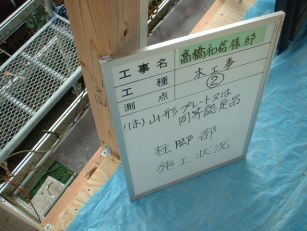 工事名 高橋和信様邸
工種 木工事
測点 ②
(は)山形プレート又は
同等認定品
柱脚部
施工状況